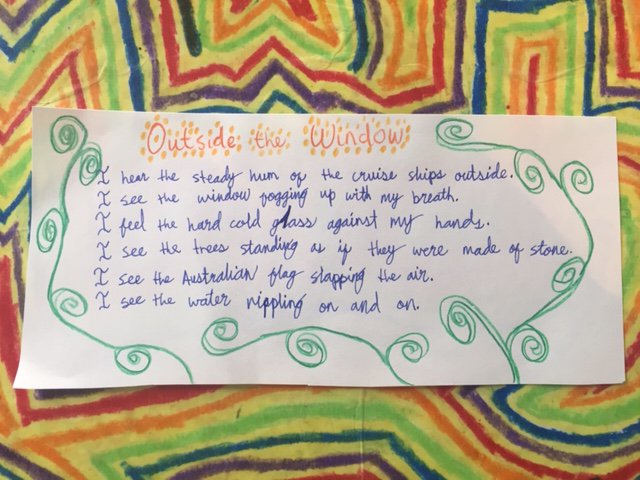 Outside the Window
I hear the steady hum of the cruise ships outside.
I see the window fogging up with my breath.
I feel the hard cold glass against my hands.
I see the trees standing as if they were made of stone.
I see the Australian flag slapping the air.
I see the water rippling on and on.